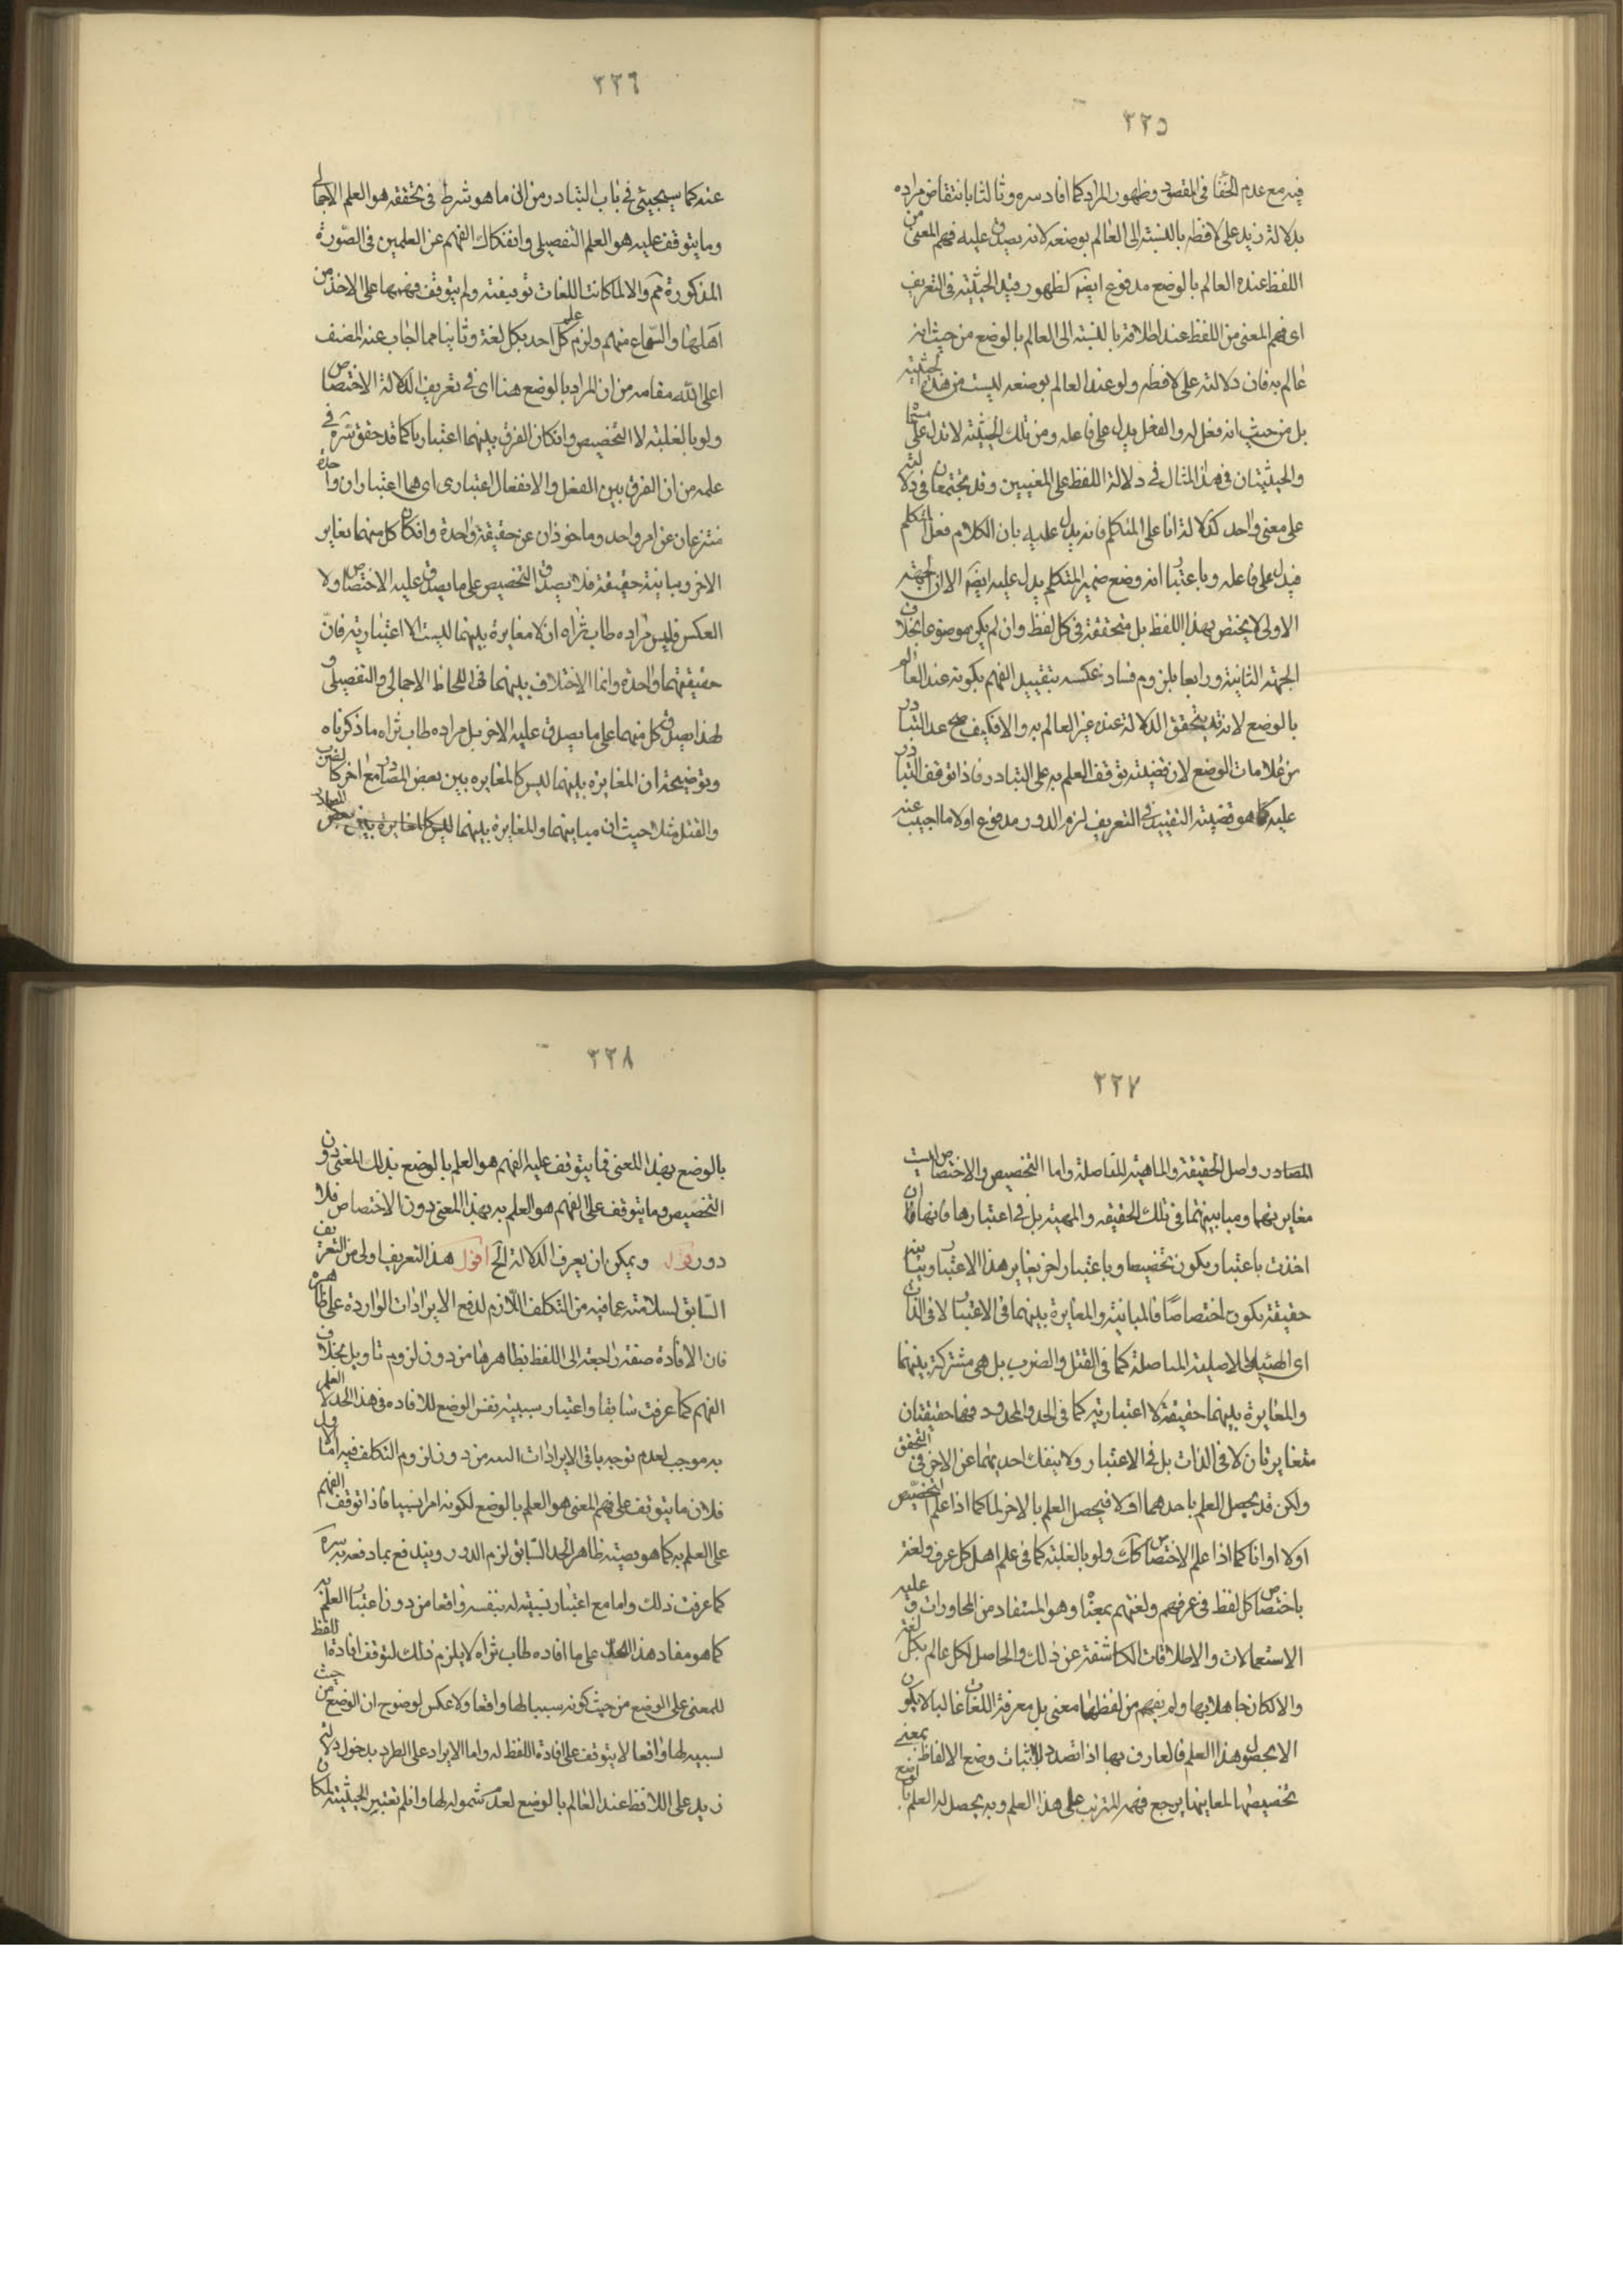 ٢٢٥
فيه مع عدم الخفا فى المقصود وظهور المراد كما افاد سره وثالثا بانتقاض مراده
بدلالة زيد على لافظه بالنسبة الى العالم بوضعه لانه يصدق عليه فهم المعنى من
اللفظ عنده العالم بالوضع مدفوع ايضا لظهور قيد الحيثية فى التعريف
اى فهم المعنى من اللفظ عند اطلاقه بالنسبة الى العالم بالوضع من حيث انه
عالم به فان دلالته على لافظه ولو عند العالم بوضعه ليست من هذه الحيثية
بل من حيث انه فعل له والفعل يدل على فاعله ومن تلك الحيثية لا تدل على مسما
والحيثيتان فى هذا المثال فى دلالة اللفظ على المعنيين وقد يجتمعان فى دلالته
على معنى واحد كدلالة انا على المتكلم فانه يدل عليه بان الكلام فعل المتكلم
فيدل على فاعله وباعتبار انه وضع ضمير المتكلم يدل عليه ايضا الا ان الجهة
الاولى لا يختص بهذا اللفظ بل متحققة فى كل لفظ وان لم يكن موضوعا بخلاف
الجهة الثانية ورابعا بلزوم فساد عكسه بتقييد الفهم بكونه عند العالم
بالوضع لانه قد يتحقق الدلالة عند غير العالم به والا فكيف صح عد التبادر
من علامات الوضع لان قضيته توقف العلم به على التبادر فاذا توقف التبادر
عليه كما هو قضية التقييد فى التعريف لزم الدور مدفوع اولا ما اجيب عنه
٢٢٦
عنه كما سيجيئ فى باب التبادر من ان ما هو شرط فى تحققه هو العلم الاجمالى
وما يتوقف عليه هو العلم التفصيلى وانفكاك الفهم عن العلمين فى الصورة
المذكورة مم والا لما كانت اللغات توقيفية ولم يتوقف فهمها على الاخذ من
اهلها والسماع منهم ولزم علم كل احد بكل لغة وثانيا مما اجاب عنه المصنف
اعلى الله مقامه من ان المراد بالوضع هنا اى فى تعريف الدلالة الاختصاص
ولو بالغلبة لا التخصيص وان كان الفرق بينهما اعتباريا كما قد حقق شره فى
علمه من ان الفرق بين الفعل والانفعال اعتبارى اى هما اعتباران واحدة
منتزعان عن امر واحد وماخوذان عن حقيقة واحدة وان كان كل منهما يغاير
الاخر ويباينه حقيقة فلا يصدق التخصيص على ما يصدق عليه الاختصاص ولا
العكس فليس مراده طاب ثراه ان لا مغايرة بينهما ليست الا اعتبارية فان
حقيقتهما واحدة وانما الاختلاف بينهما فى اللحاظ الاجمالى والتفصيلى و
لهذا يصدق كل منهما على ما يصدق عليه الاخر بل مراده طاب ثراه ما ذكرناه
وتوضيحه ان المغايرة بينهما ليس كالمغايره بين بعض المصادر مع اخر كالضرب
والقتل مثلا حيث ان مباينتهما والمغايرة بينهما ليس كالمغايرة بين بعض
٢٢٧
المصادر واصل الحقيقة والماهية للفاصلة واما التخصيص والاختصاص ليست
مغايرتهما ومباينتهما فى تلك الحقيقه والمهية بل فى اعتبارها فانها ان
اخذت باعتبار يكون تخصيصا وباعتبار اخر يغاير هذا الاعتبار ويباينه
حقيقة يكون اختصاصًا فالمباينة والمغايرة بينهما فى الاعتبار لا فى الذات
اى الاصلية المتاصلة كما فى القتل والضرب بل هى مشتركة بينهما
والمغايرة بينهما حقيقة لا اعتبارية كما فى الحد والمحدود فهما حقيقتان
متغايرتان لا فى الذات بل فى الاعتبار ولا ينفك احديهما عن الاخر فى التحقق
ولكن قد يحصل العلم باحدهما اولا فيحصل العلم بالاخر لما كما اذا علم التخصيص
اولا او انا كما اذا علم الاختصاص ولو بالغلبة كما فى علم اهل كل عرف ولغة
باختصاص كل لفظ فى عرفهم ولغتهم بمعنا وهو المستفاد من المحاورات و عليه
الاستعمالات والاطلاقات الكاشفة عن ذلك والحاصل لكل عالم بكل لغة
والا لكان جاهلا بها ولم يفهم من لفظها معنى بل معرفة اللغات غالبا لا يكون
الا بحصول هذا العلم فالعارف بها اذا تصدى لاثبات وضع الالفاظ بمعنى
تخصيصها لمعاينها يرجع فهمه المترتب على هذا العلم وبه يحصل له العلم بالوضع
٢٢٨
بالوضع بهذا المعنى فما يتوقف عليه الفهم هو العلم بالوضع بذلك المعنى دون
التخصيص وما يتوقف على الفهم هو العلم به بهذا المعنى دون الاختصاص فلا
دور قوله ويمكن ان يعرف الدلالة الخ اقول هذا التعريف اولى من التعريف
السابق لسلامته عما فيه من التكلف اللازم لدفع الايرادات الواردة على ظاهره
فان الافادة صفة راجعة الى اللفظ بظاهرها من دون لزوم تاويل بخلاف
الفهم كما عرفت سابقا واعتبار سببية نفس الوضع للافاده فى هذا الحد لا العلم
به موجب لعدم توجه باقى الايرادات من دون لزوم التكلف فيه اما الاول
فلان ما يتوقف على فهم المعنى هو العلم بالوضع لكونه امرا نسبيا فاذا توقف الفهم
على العلم به كما هو قضية ظاهر الحد السابق لزم الدور ويندفع بما دفعه به سره
كما عرفت ذلك واما مع اعتبار نسبته له بنفسه واقعا من دون اعتبار العلم به
كما هو مفاد هذا الحد على ما افاده طاب ثراه لا يلزم ذلك لتوقف افادة اللفظ
للمعنى على الوضع من حيث كونه سببا لها واقعا ولا عكس لوضوح ان الوضع من حيث
لسببه لها واقعا لا يتوقف على افادة اللفظ له واما الايراد على الطرد بدخول دلالة
زيد على اللافظ عند العالم بالوضع لعدم شموله لها وان لم نعتبر الحيثية لمكان